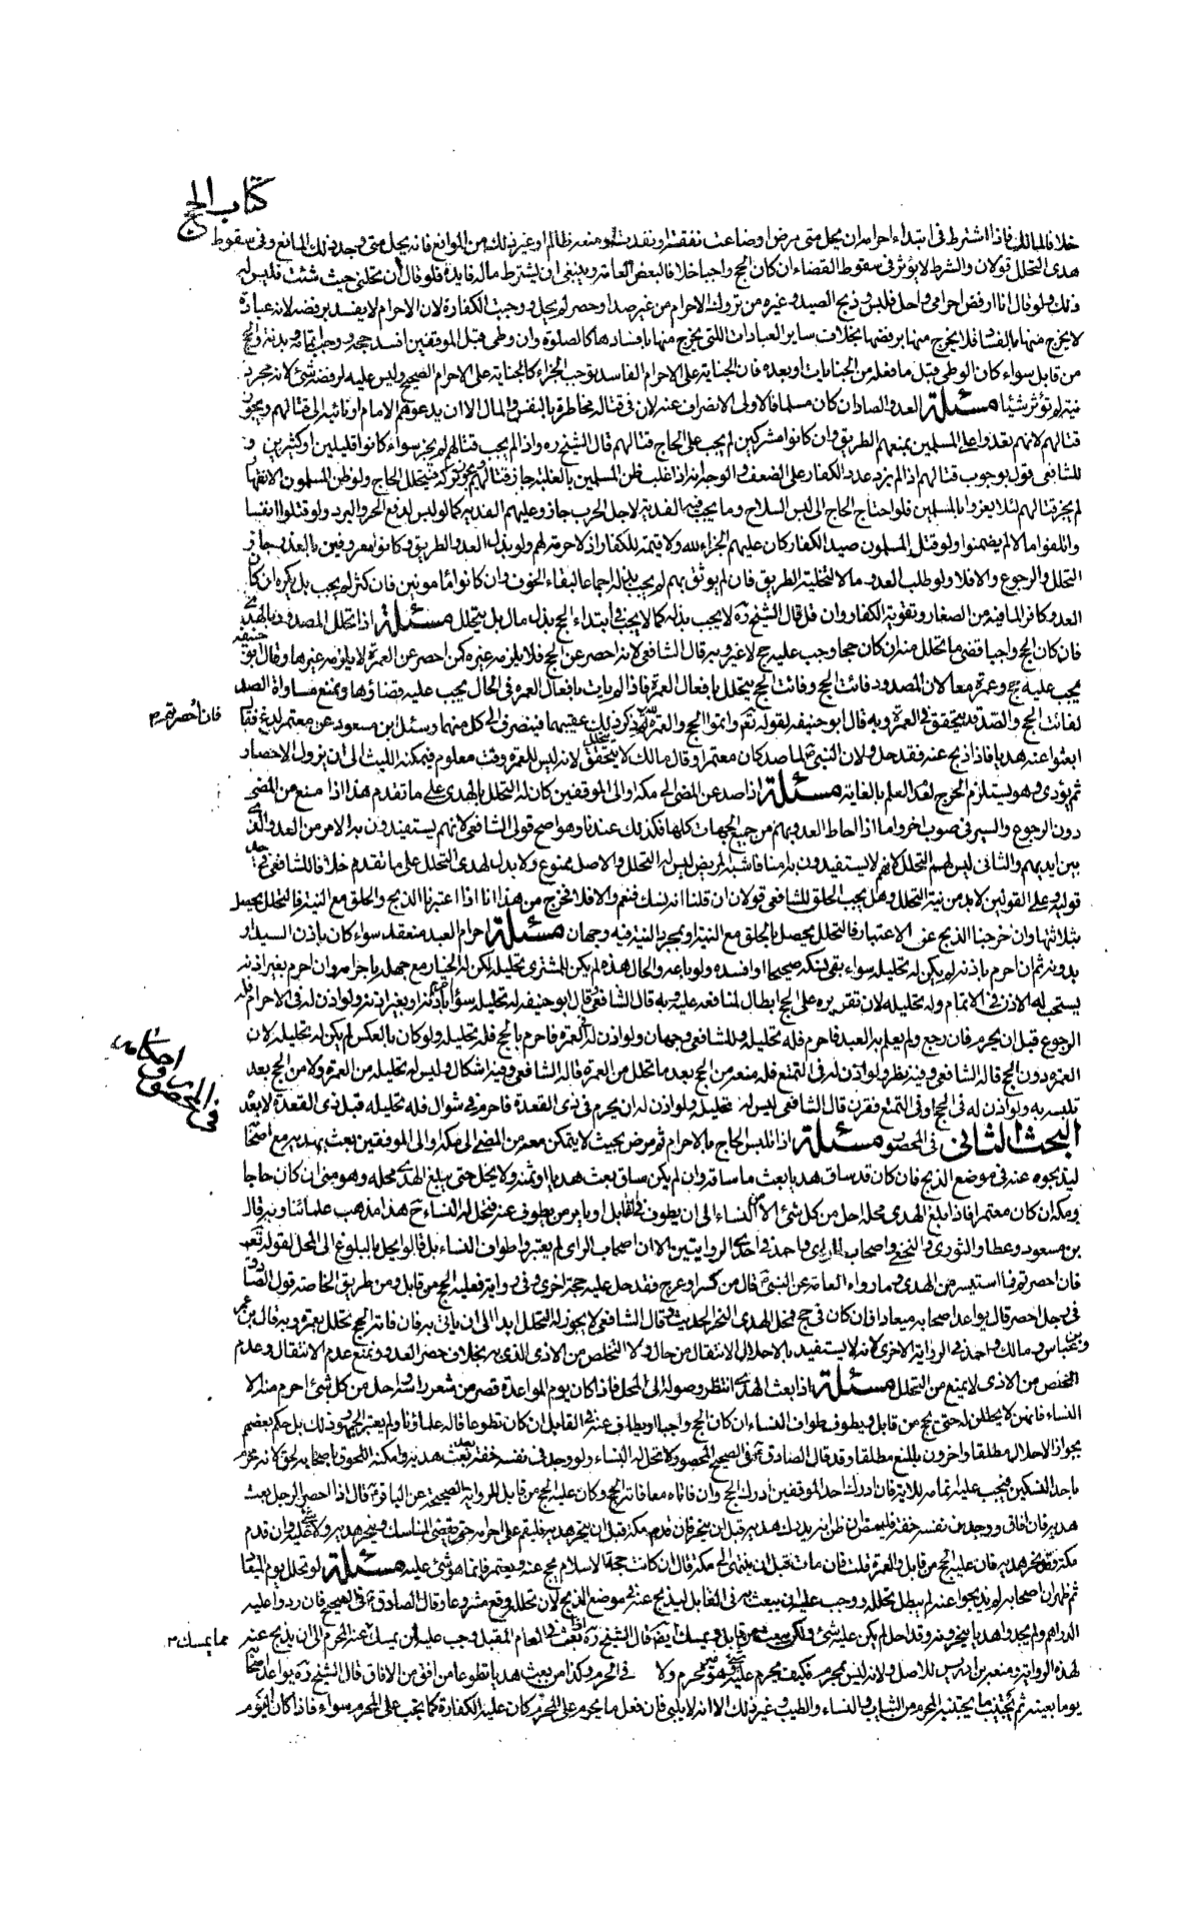 كتاب الحج
خلافا لمالك فاذا اشترط فى ابتداء احرامه ان يحل متى مرض او ضاعت نفقته او نفدت او منعه ظالم او غير ذلك من الموانع فانه يحل متى وجد ذلك المانع وفى سقوط
هدى التحلل قولان والشرط لا يؤثر فى سقوط القضاء ان كان الحج واجبا خلافا لبعض العامة وينبغى ان يشترط ماله فايدة فلو قال ان تحلنى حيث شئت فليس له
ذلك ولو قال انا ارفض احرامى واحل فلبس وذبح الصيد وغيره من تروك الاحرام من غير صد او حصر لم يحل ووجبت الكفارة لان الاحرام لا يفسد برفضه لانه عبادة
لا يخرج منها بالفساد فلا يخرج منها برفضها بخلاف ساير العبادات اللتى يخرج منها بافسادها كالصلوة وان وطى قبل الموقفين افسد حجه ووجب اتمامه وبدنة والحج
من قابل سواء كان الوطى قبل ما فعله من الجنايات او بعده فان الجناية على الاحرام الفاسد توجب الجزاء كالجناية على الاحرام الصحيح وليس عليه لرفضه شئ لانه مجرد
نية لم تؤثر شيئا مسئلة العدو الصاد ان كان مسلما فالاولى الانصراف عنه لان فى قتاله مخاطرة بالنفس والمال الا ان يدعوهم الامام او نائبه الى قتالهم ويجوز
قتالهم لانهم تعدوا على المسلمين بمنعهم الطريق وان كانوا مشركين لم يجب على الحاج قتالهم قال الشيخ ره واذا لم يجب قتالهم لم يجز سواء كانوا قليلين او كثيرين و
للشافعى قول بوجوب قتالهم اذا لم يزد عدد الكفار على الضعف والوجه انه اذا غلب ظن المسلمين بالغلبة جاز قتالهم ويجوز تركه فيتحلل الحاج ولو ظن المسلمون الانقهار
لم يجز قتالهم لئلا يغروا بالمسلمين فلو احتاج الحاج الى لبس السلاح وما يجب فيه الفدية لاجل الحرب جاز وعليهم الفدية كما لو لبس لدفع الحر والبرد ولو قتلوا انفسا
واتلفوا مالا لم يضمنوا ولو قتل المسلمون صيد الكفار كان عليهم الجزاء لله ولا قيمة للكفار اذ لا حرمة لهم ولو بذل العدو الطريق وكانوا معروفين بالغدر جاز
التحلل والرجوع والا فلا ولو طلب العدو مالا لتخلية الطريق فان لم يوثق بهم لم يجب بذله اجماعا لبقاء الخوف وان كانوا مامونين فان كثر لم يجب بل يكره ان كان
العدو كافرا لما فيه من الصغار وتقوية الكفار وان قل قال الشيخ ره لا يجب بذله كما لا يجب فى ابتداء الحج بذل مال بل يتحلل مسئلة اذا تحلل المصدود بالهدى
فان كان الحج واجبا قضى ما تحلل منه ان كان حجا وجب عليه حج لا غير وبه قال الشافعى لانه احصر عن الحج فلا يلزمه غيره كمن احصر عن العمرة لا يلزمه غيرها وقال ابو حنيفه
يجب عليه حج وعمرة معا لان المصدود فائت الحج وفائت الحج يتحلل بافعال العمرة فاذا لم يات بافعال العمرة فى الحال يجب عليه قضاؤها ويمنع مساواة الصد
لفائت الحج والصد قد يتحقق فى العمرة وبه قال ابو حنيفه لقوله تعم واتموا الحج والعمرة لله ذكر ذلك عقيبهما فينصرف الى كل منهما وسئل ابن مسعود عن معتمر لدغ فقال
فان احصرتم ٣
ابعثوا عنه هديا فاذا ذبح عنه فقد حل ولان النبى لما صد كان معتمرا وقال مالك لا يتحقق لانه ليس للعمرة وقت معلوم فيمكنه اللبث الى ان يزول الاحصار
ثم يؤدى وهو يستلزم الحرج لفقد العلم بالغاية مسئلة اذا صد عن المضى الى مكة والى الموقفين كان له التحلل بالهدى على ما تقدم هذا اذا منع من المضى
دون الرجوع والسير فى صوب اخر واما اذا احاط العدو بهم من جميع الجهات كلها فكذلك عندنا وهو اصح قولى الشافعى لانهم يستفيدون به الامن من العدو الذى
بين ايديهم والثانى ليس لهم التحلل لانهم لا يستفيدون به امنا فاشبه المريض ليس له التحلل والاصل ممنوع ولا بد له هدى التحلل على ما تقدم خلافا للشافعى فى احد
قوليه وعلى القولين لا بد من نية التحلل وهل يجب الحلق للشافعى قولان ان قلنا انه نسك فنعم والا فلا فخرج من هذا انا اذا اعتبرنا الذبح والحلق مع النية فالتحلل يحصل
بثلاثتها وان خرجنا الذبح عن الاعتبار فالتحلل يحصل بالحلق مع النية او بمجرد النية فيه وجهان مسئلة احرام العبد منعقد سواء كان باذن السيد او
بدونه ثم ان احرم باذنه لم يكن له تحليله سواء بقى نسكه صحيحا او افسده ولو باعه والحال هذه لم يكن للمشترى تحليله لكن له الخيار مع جهله باحرامه وان احرم بغير اذنه
يستحب له الاذن فى الاتمام وله تحليله لان تقريره على الحج ابطال لمنافعه عليه وبه قال الشافعى وقال ابو حنيفه له تحليله سواء باذنه او بغير اذنه ولو اذن له فى الاحرام فله
الرجوع قبل ان يحرم فان رجع ولم يعلم به العبد فاحرم فله تحليله وللشافعى وجهان ولو اذن له فى العمرة فاحرم بالحج فله تحليله ولو كان بالعكس لم يكن له تحليله لان
العمرة دون الحج قاله الشافعى وفيه نظر ولو اذن له فى التمتع فله منعه من الحج بعد ما تحلل من العمرة قاله الشافعى وفيه اشكال وليس له تحليله من العمرة ولا من الحج بعد
تلبسه به ولو اذن له فى الحج او فى التمتع فقرن قال الشافعى ليس له تحليله ولو اذن له ان يحرم فى ذى القعدة فاحرم فى شوال فله تحليله قبل ذى القعدة لا بعد
البحث الثانى فى المحصور مسئلة اذا تلبس الحاج بالاحرام ثم مرض بحيث لا يتمكن معه من المضى الى مكة او الى الموقفين بعث بهديه مع اصحابه
فى المحصور واحكامه
ليذبحوه عنه فى موضع الذبح فان كان قد ساق هديا بعث ما ساقه وان لم يكن ساق بعث هديا او ثمنه ولا يحل حتى يبلغ الهدى محله وهو منى ان كان حاجا
ومكة ان كان معتمرا فاذا بلغ الهدى محله احل من كل شئ الا من النساء الى ان يطوف فى القابل او يامر من يطوف عنه فتحل له النساء ح هذا مذهب علمائنا وبه قال
بن مسعود وعطا والثورى والنخعى واصحاب الراى واحمد فى احدى الروايتين الا ان اصحاب الراى لم يعتبروا طواف النساء بل قالوا يحل بالبلوغ الى المحل لقوله تعم
فان احصرتم فما استيسر من الهدى وما رواه العامة عن النبى قال من كسر او عرج فقد حل عليه حجة اخرى وفى رواية فعليه الحج من قابل ومن طريق الخاصة قول الصادق
فى رجل احصر قال يواعد اصحابه ميعادا فان كان فى حج فمحل الهدى النحر الحديث وقال الشافعى لا يجوز له التحلل ابدا الى ان ياتى به فان فاته الحج تحلل بعمرة وبه قال ابن عمر
وابن عباس ومالك واحمد فى الرواية الاخرى لانه لا يستفيد بالاحلال الانتقال من حال ولا التخلص من الاذى الذى به بخلاف حصر العدو ونمنع عدم الانتقال وعدم
التخلص من الاذى لا يمنع من التحلل مسئلة اذا بعث الهدى انتظر وصوله الى المحل فاذا كان يوم المواعدة قصر من شعر راسه واحل من كل شئ احرم منه الا
النساء فانهن لا يحللن له حتى يحج من قابل ويطوف طواف النساء ان كان الحج واجبا او يطاف عنه فى القابل ان كان تطوعا قاله علماؤنا ولم يعتبر الجمهور ذلك بل حكم بعضهم
بجواز الاحلال مطلقا واخرون بالمنع مطلقا وقد قال الصادق فى الصحيح المحصور لا تحل له النساء ولو وجد فى نفسه خفة بعد بعث هديه وامكنه اللحوق باصحابه لحق لانه محرم
باحد النسكين فيجب عليه اتمامه للاية فان ادرك احد الموقفين ادرك الحج وان فاتاه معا فاته الحج وكان عليه الحج من قابل للرواية الصحيحة عن الباقر قال اذا احصر الرجل بعث
هديه فان افاق ووجد من نفسه خفة فليمض ان ظن انه يدرك هديه قبل ان ينحر فان قدم مكة قبل ان ينحر هديه فليقم على احرامه حتى يقضى المناسك وينحر هديه ولا شئ عليه وان قدم
مكة وقد نحر هديه فان عليه الحج من قابل والعمرة قلت فان مات قبل ان ينتهى الى مكة قال ان كانت حجة الاسلام يحج عنه ويعتمر فانما هو شئ عليه مسئلة لو تحلل يوم الميعاد
ثم ظهر ان اصحابه لم يذبحوا عنه لم يبطل تحلله ووجب عليه ان يبعث به فى القابل ليذبح عنه فى موضع الذبح لان تحلله وقع مشروعا وقال الصادق فى الصحيح فان ردوا عليه
الدراهم ولم يجدوا هديا ينحرونه وقد احل لم يكن عليه شئ ولكن يبعث من قابل ويمسك ايضا قال الشيخ ره يبعث فى العام المقبل ووجب عليه ان يمسك عنه المحرم الى ان يذبح عنه
مما يمسك ٣
لهذه الرواية ومنعه بن ادريس للاصل ولانه ليس بمحرم فكيف يحرم عليه شئ وهو غير محرم ولا فى الحرم وكذا من بعث هديا تطوعا من افق من الافاق قال الشيخ ره يواعد اصحابه
يوما بعينه ثم يجتنب ما يجتنبه المحرم من الثياب والنساء والطيب وغير ذلك الا انه لا يلبى فان فعل ما يحرم على المحرم كان عليه الكفارة كما يجب على المحرم سواء فاذا كان اليوم